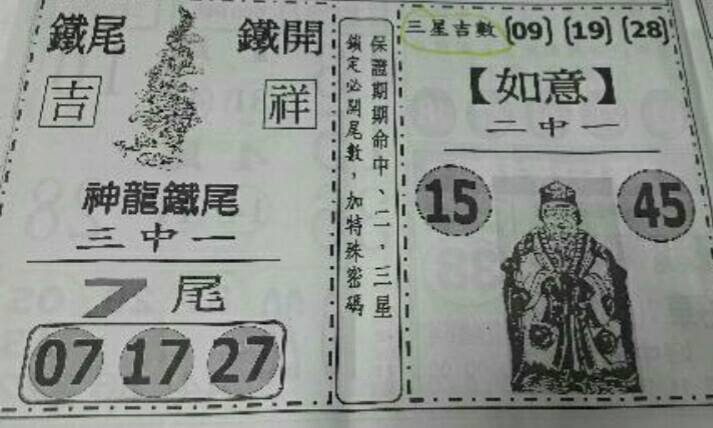 鐵尾 鐵開
吉 祥
神龍鐵尾
三中一
7尾
07 17 27
保證期期命中、二，三星
鎖定必開尾數，加特殊密碼
三星吉數 (09) (19) (28)
【如意】
二中一
15 45